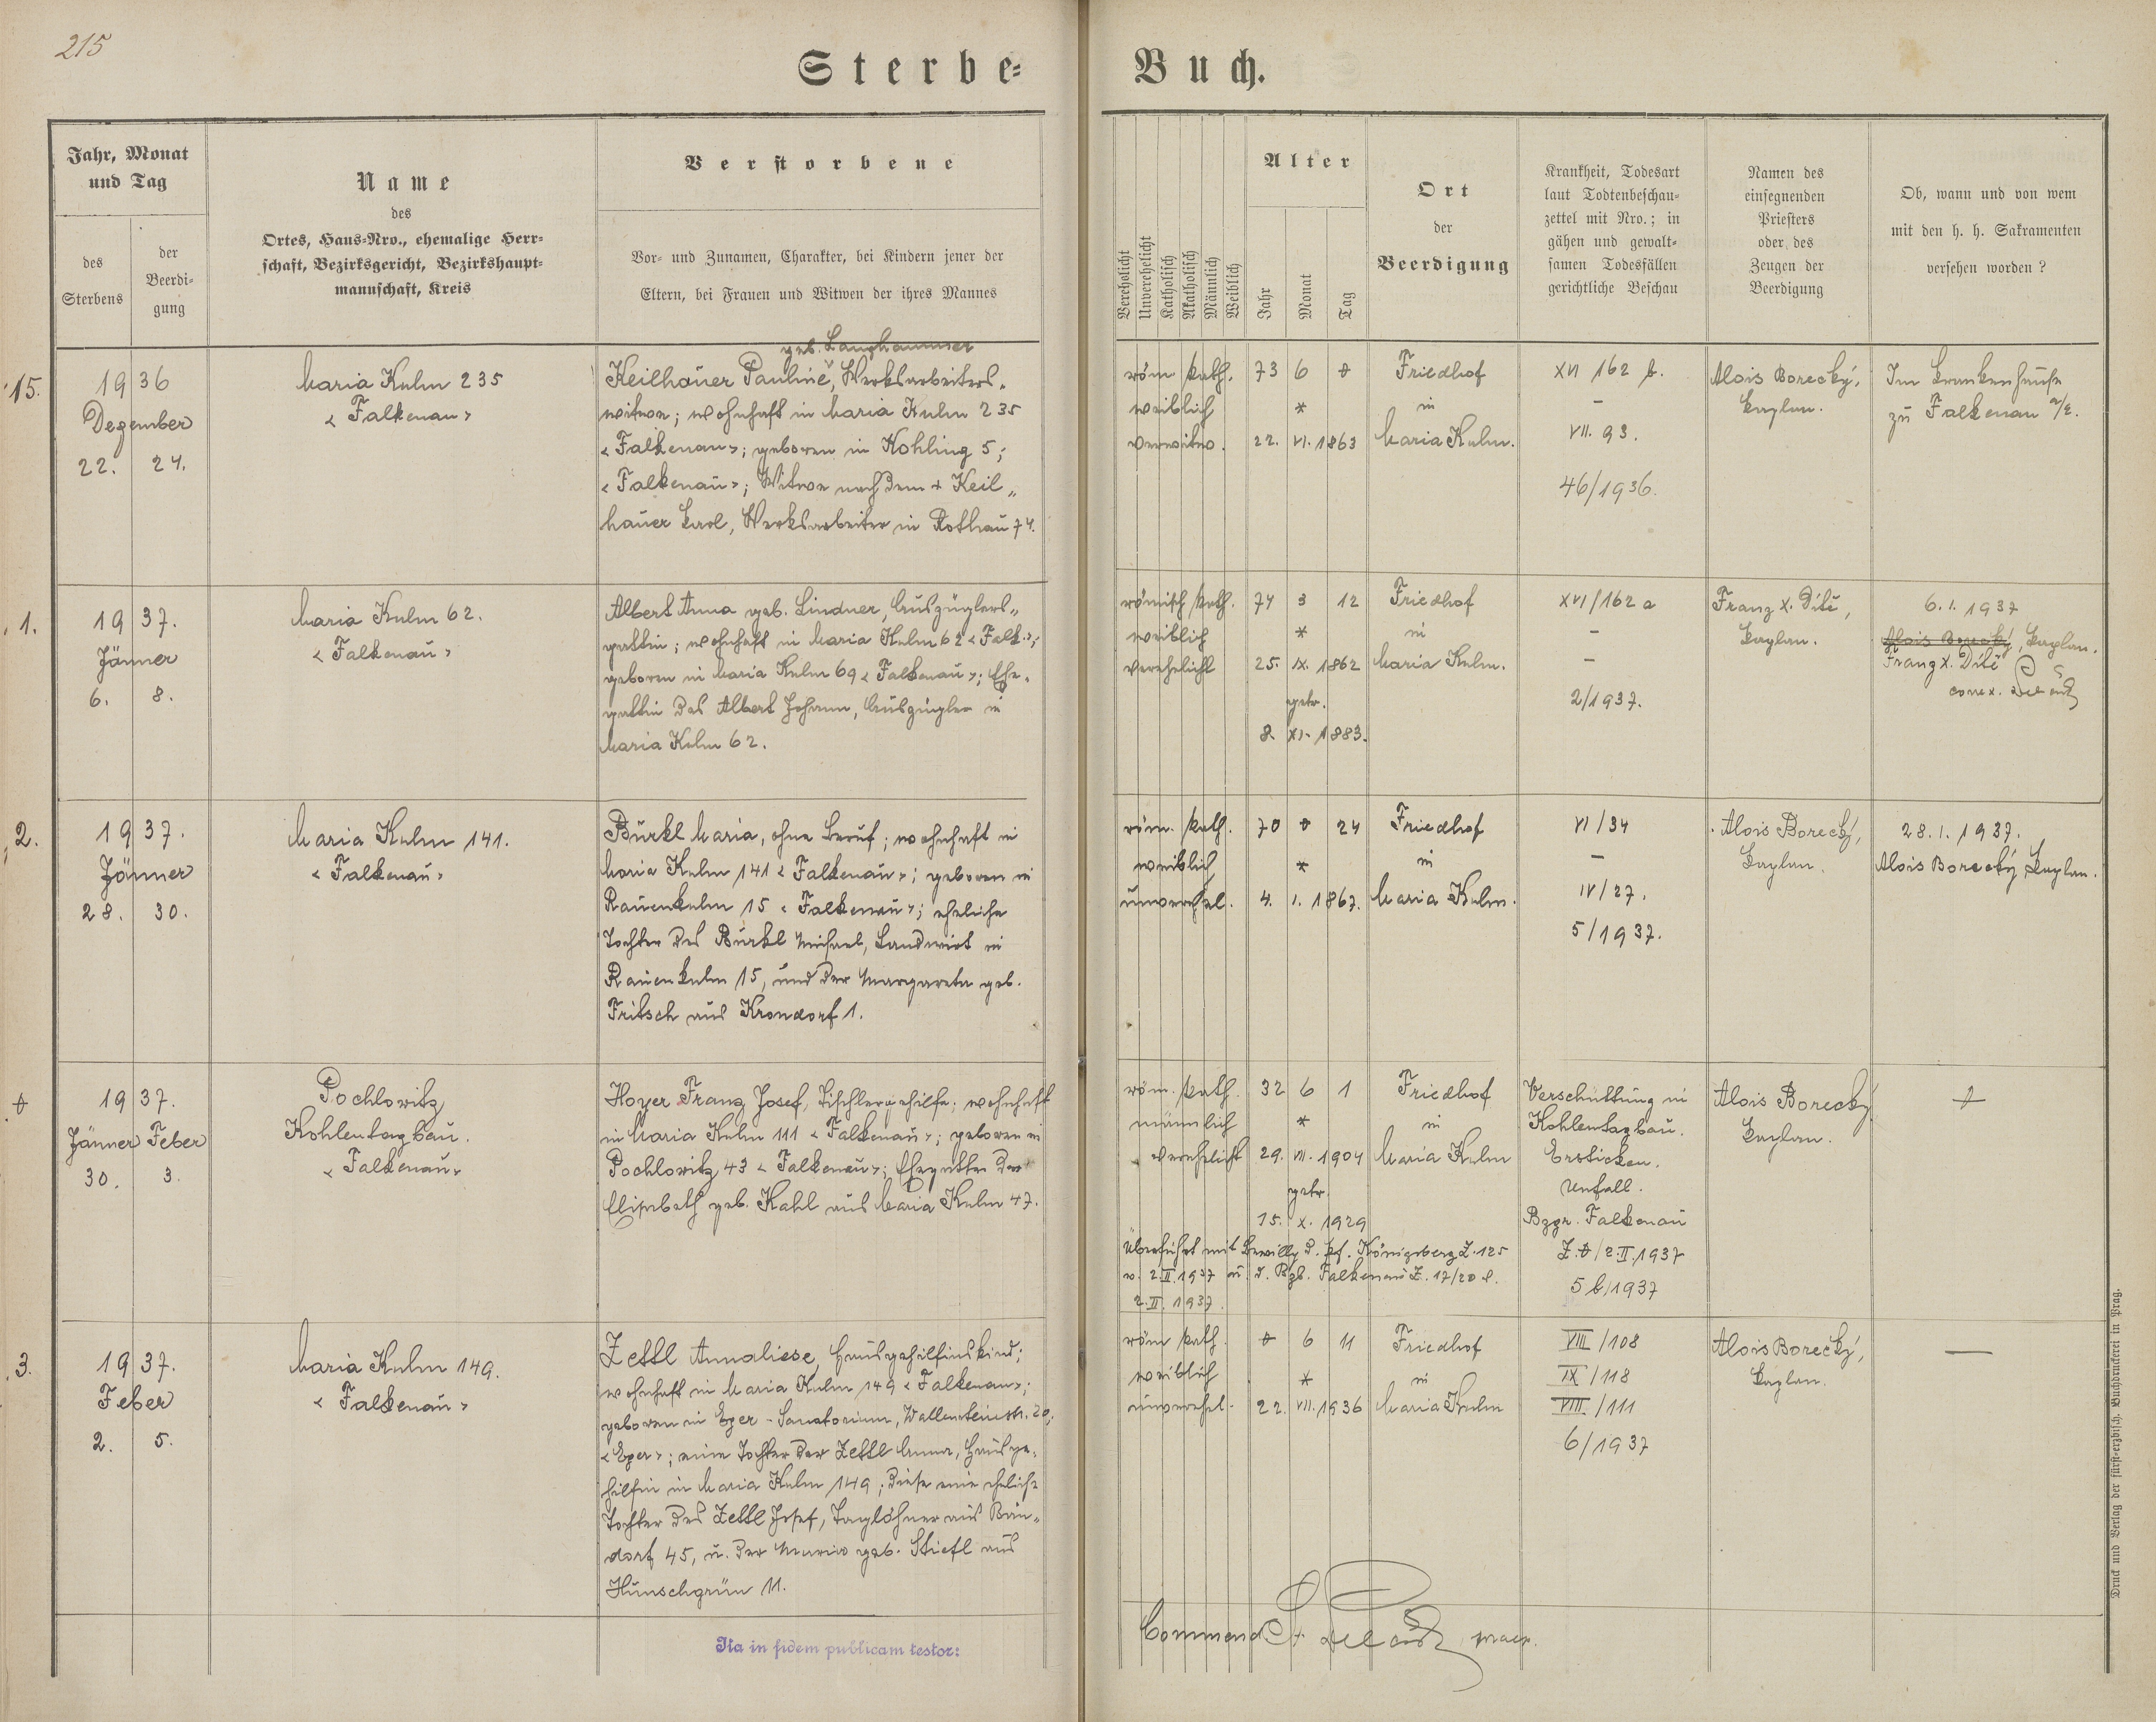 215
Sterbe-
Buch.
Jahr, Monat
und Tag
des
Sterbens
der
Beerdi-
gung
Name
des
Ortes, Haus-Nro., ehemalige Herr-
schaft, Bezirksgericht, Bezirkshaupt-
mannschaft, Kreis
Verstorbene
Vor- und Zunamen, Charakter, bei Kindern jener der
Eltern, bei Frauen und Witwen der ihres Mannes
Verehelicht
Unverehelicht
Katholisch
Akatholisch
Männlich
Weiblich
Alter
Jahr
Monat
Tag
Ort
der
Beerdigung
Krankheit, Todesart
laut Todtenbeschau-
zettel mit Nro.; in
gähen und gewalt-
samen Todesfällen
gerichtliche Beschau
Namen des
einsegnenden
Priesters
oder des
Zeugen der
Beerdigung
Ob, wann und von wem
mit den h. h. Sakramenten
versehen worden?
15.
1936
Dezember
22. 24.
Maria Kulm 235
< Falkenau >
geb. Langhammer
Keilhauer Pauline, Werksarbeiters-
witwe; wohnhaft in Maria Kulm 235
< Falkenau >; geboren in Kohling 5;
< Falkenau >; Witwe nach dem + Keil-
hauer Karl, Werksarbeiter in Rothau 74.
röm. kath.
weiblich
verwitw.
73 6
*
22. VI. 1863
Friedhof
in
Maria Kulm.
XVI 162 b.
-
VII. 93.
46/1936.
Alois Borecký,
Kaplan.
Im Krankenhause
zu Falkenau a/E.
1.
1937.
Jänner
6. 8.
Maria Kulm 62.
< Falkenau >
Albert Anna geb. Lindner, Auszüglers-
gattin; wohnhaft in Maria Kulm 62 < Falk. >;
geboren in Maria Kulm 69 < Falkenau >; Ehe-
gattin des Albert Johann, Auszügler in
Maria Kulm 62.
römisch kath.
weiblich
verehelicht
74 3 12
*
25. IX. 1862
getr.
8. XI. 1883.
Friedhof
in
Maria Kulm.
XVI/162 a
-
-
2/1937.
Franz X. Dítě,
Kaplan.
6.1.1937
Alois Borecký, Kaplan.
Franz X. Dítě
2.
1937.
Jänner
28. 30.
Maria Kulm 141.
< Falkenau >
Bürkl Maria, ohne Beruf; wohnhaft in
Maria Kulm 141 < Falkenau >; geboren in
Rauenkulm 15 < Falkenau >; eheliche
Tochter des Bürkl Michael, Landwirt in
Rauenkulm 15, und der Margareta geb.
Fritsch aus Krondorf 1.
röm. kath.
weiblich
unverehel.
70 24
*
4. 1. 1867.
Friedhof
in
Maria Kulm.
VI/34
-
IV/27.
5/1937.
Alois Borecký,
Kaplan.
28.1.1937.
Alois Borecký, Kaplan.
1937.
Jänner Feber
30. 3.
Pochlowitz
Kohlentagbau.
< Falkenau >
Hoyer Franz Josef, Tischlergehilfe; wohnhaft
in Maria Kulm 111 < Falkenau >; geboren in
Pochlowitz 43 < Falkenau >; Ehegatte der
Elisabeth geb. Kahl aus Maria Kulm 47.
röm. kath.
männlich
verehelicht
32 6 1
*
29. VII. 1904
getr.
15. X. 1929
Friedhof
in
Maria Kulm
Überführt mit Bewillg. d. Pf. Königsberg Z. 125
v. 2.II.1937 u. d. Bzb. Falkenau Z. 17/20 d.
2.II.1937.
Verschüttung in
Kohlentagbau.
Ersticken.
Unfall.
Bzgr. Falkenau
2.II.1937
5 b/1937
Alois Borecký
Kaplan.
3.
1937.
Feber
2. 5.
Maria Kulm 149.
< Falkenau >
Zettl Annaliese, Hausgehilfinskind;
wohnhaft in Maria Kulm 149 < Falkenau >;
geboren in Eger - Sanatorium, Wallensteinstr. 20,
< Eger >; eine Tochter der Zettl Anna, Hausge-
hilfin in Maria Kulm 149; diese eine eheliche
Tochter des Zettl Josef, Taglöhner aus Brün-
dorf 45, u. der Maria geb. Stiefl aus
Hünschgrün 11.
röm. kath.
weiblich
unverehel.
6 11
*
22. VII. 1936
Friedhof
in
Maria Kulm
VIII/108
IX/118
VIII/111
6/1937
Alois Borecký,
Kaplan.
—
Ita in fidem publicam testor:
Druck und Verlag der fürst-erzbisch. Buchdruckerei in Prag.